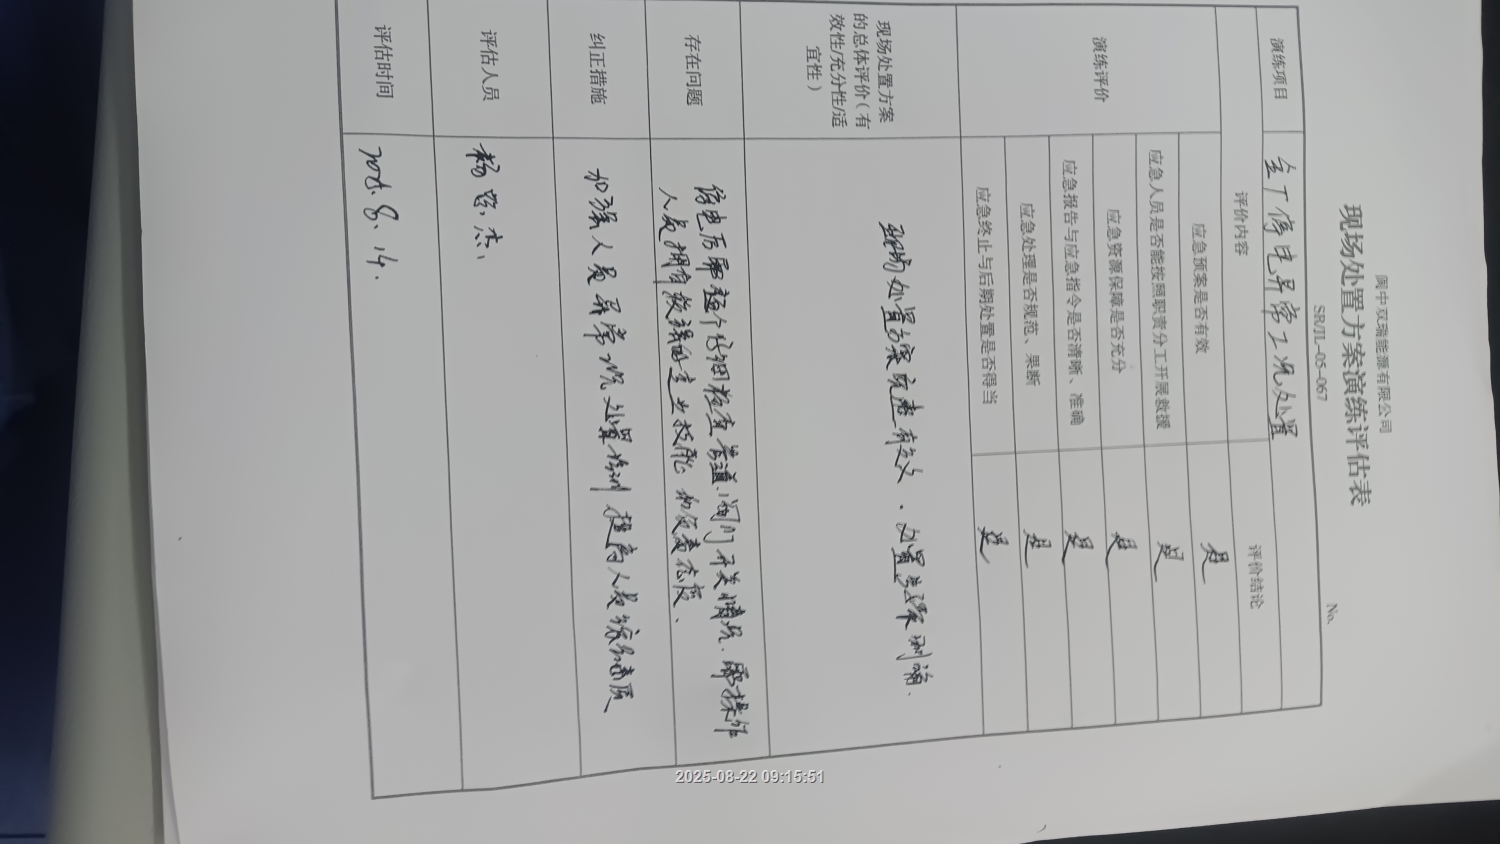 阆中双瑞能源有限公司
现场处置方案演练评估表
SR/JL-05-067
No.
演练项目 全厂停电异常工况处置
评价内容 评价结论
演练评价
应急预案是否有效 是
应急人员是否能按照职责分工开展救援 是
应急资源保障是否充分 是
应急报告与应急指令是否清晰、准确 是
应急处理是否规范、果断 是
应急终止与后期处置是否得当 是
现场处置方案的总体评价(有效性/充分性/适宜性)
现场处置方案完善有效.处置步骤明确.
存在问题
停电后需逐个仔细检查管道、阀门开关情况.需操作
人员拥有较强的专业技能和反应速度.
纠正措施
加强人员异常情况处置培训提高人员综合素质
评估人员
评估时间 2025.8.14.
2025-08-22 09:15:51